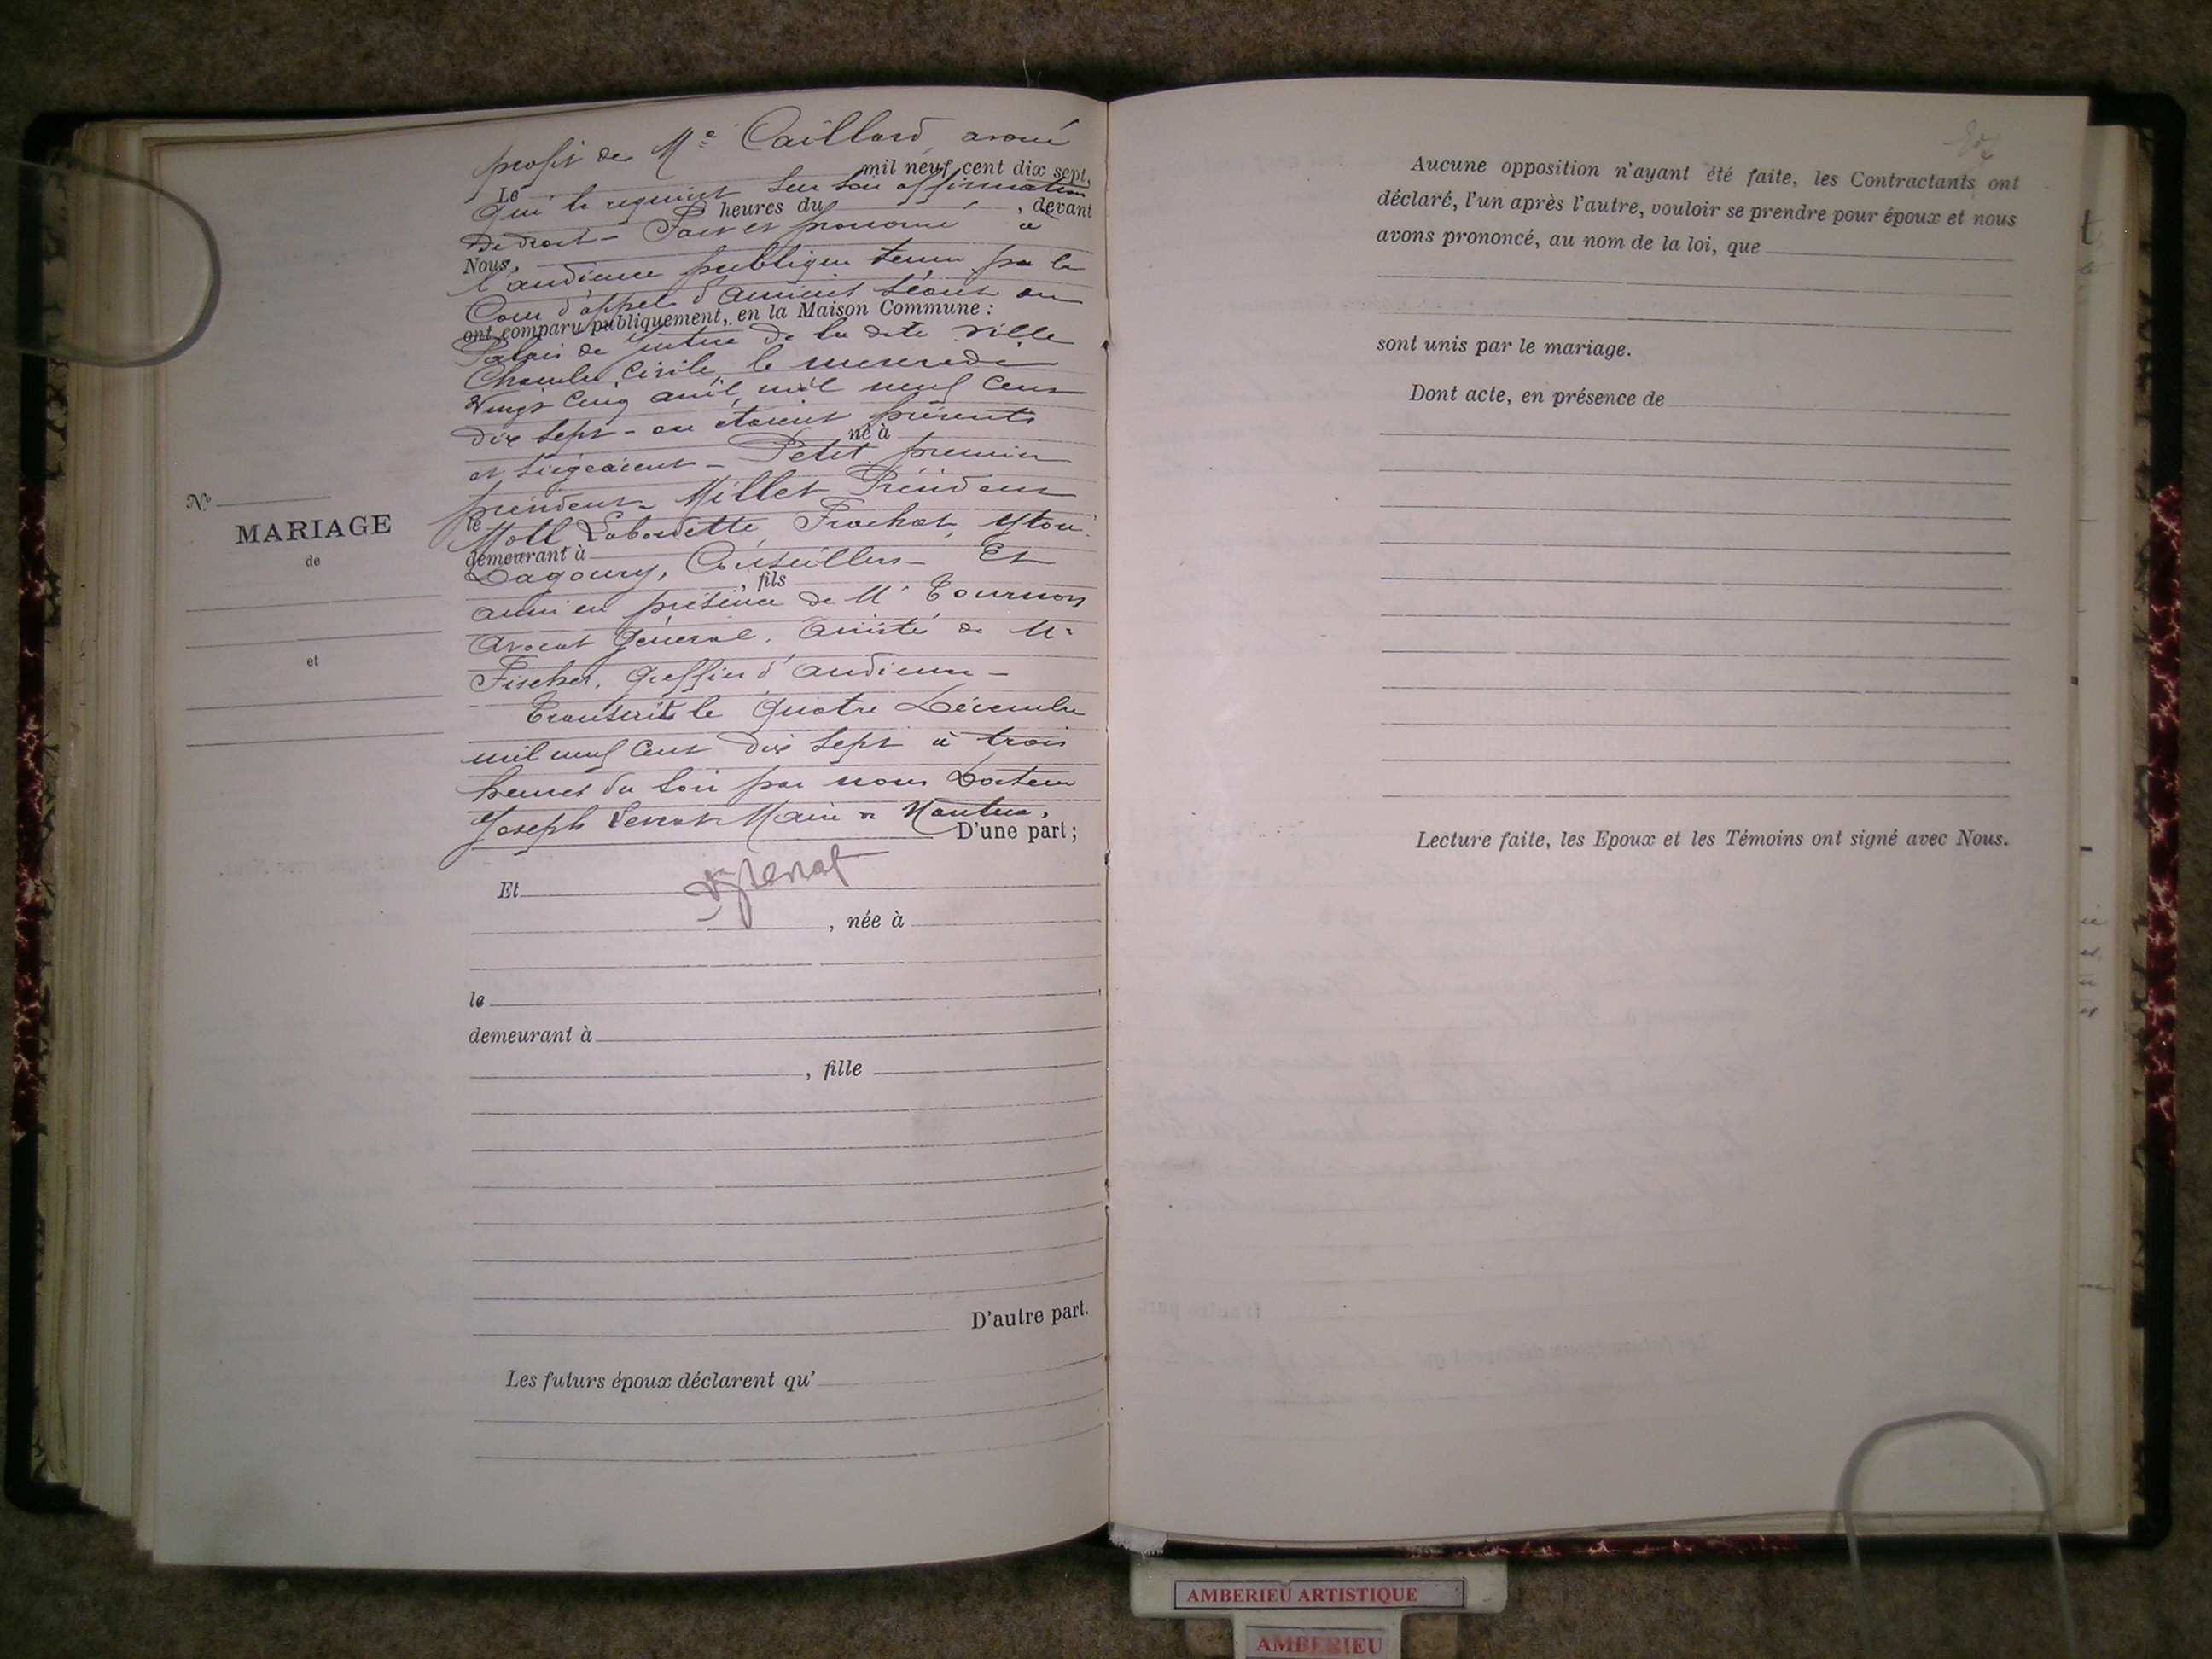 profit de Me Caillard avoué
Le mil neuf cent dix sept,
qui le requiert sur son affirmation
heures du , devant
de droit - Fait et prononcé à
Nous,
l'audience publique tenue par la
Cour d'appel d'Amiens séant au
ont comparu publiquement, en la Maison Commune :
Palais de Justice de la dite ville
Chambre Civile, le mercredi
vingt cinq avril mil neuf cent
dix sept - où étaient présents
né à
et siégeaient - Petit premier
président - Millet Président
le
Moll Labordette, Frochot,
demeurant à
Lagoury, Conseillers - Et
, fils
aussi en présence de Mr Tournon
Avocat Général. Assisté de Mr
Fischer, Greffier d'audience -
Transcrit le Quatre Décembre
mil neuf cent dix sept à trois
heures du soir par nous Docteur
Joseph Maire de Nantua,
D'une part ;
Et
, née à
le
demeurant à
, fille
D'autre part.
Les futurs époux déclarent qu'
No
MARIAGE
de
et
Aucune opposition n'ayant été faite, les Contractants ont
déclaré, l'un après l'autre, vouloir se prendre pour époux et nous
avons prononcé, au nom de la loi, que
sont unis par le mariage.
Dont acte, en présence de
Lecture faite, les Epoux et les Témoins ont signé avec Nous.
AMBERIEU ARTISTIQUE
AMBERIEU